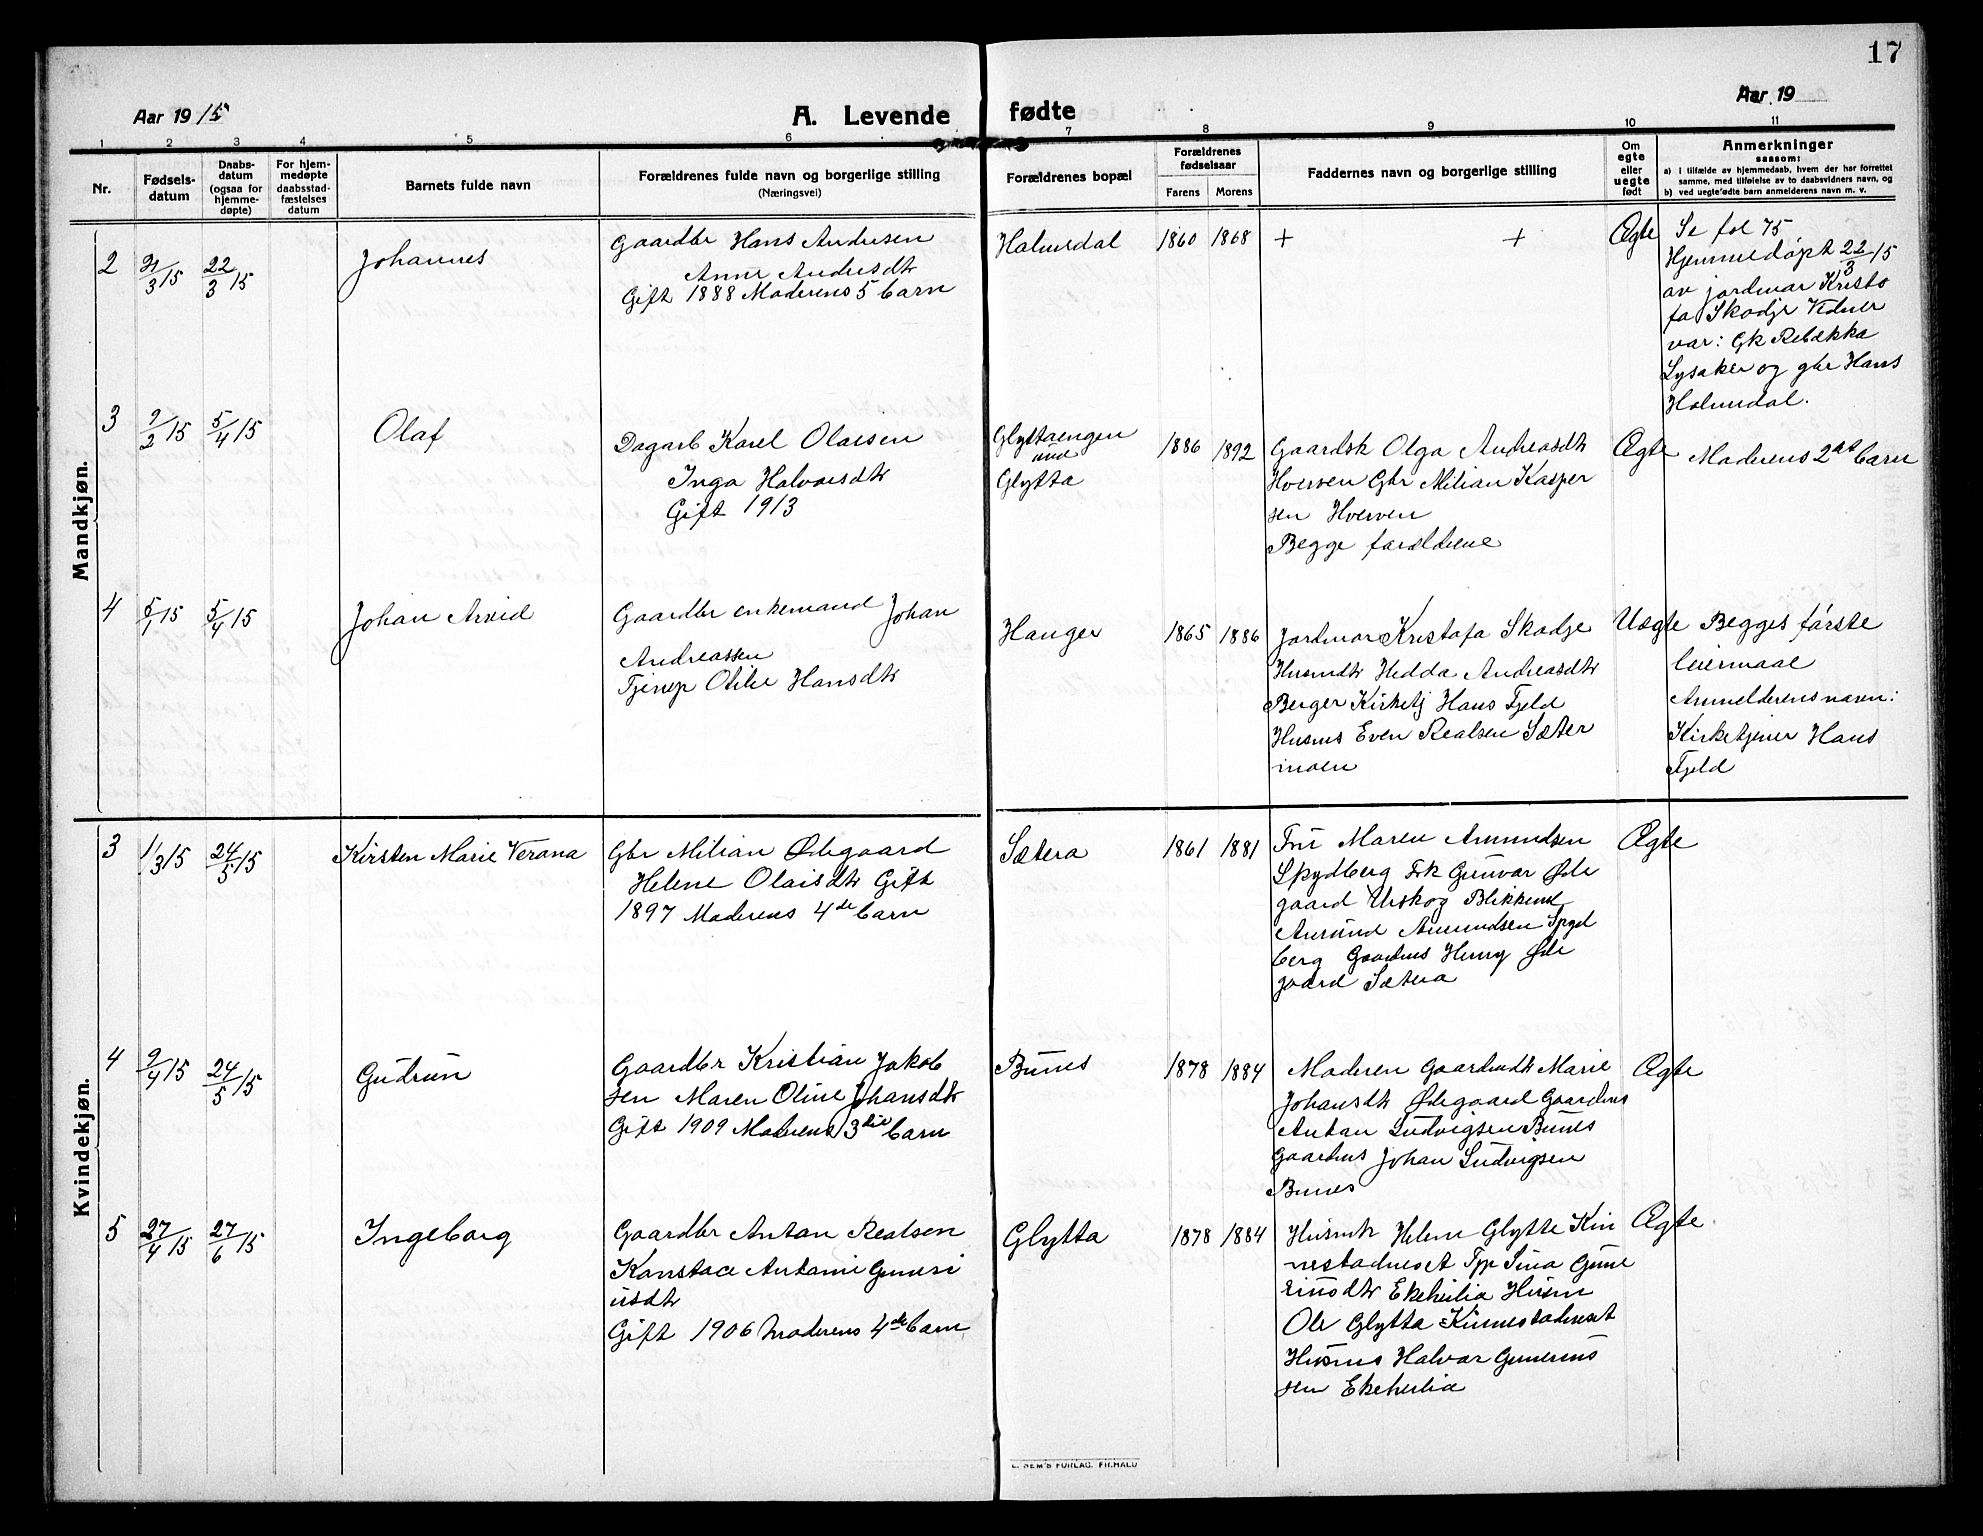 17
Aar 1915
A. Levende fødte
Aar 19
1 2 3 4 5 6 7 8 9 10 11
Nr.
Fødsels-
datum
Daabs-
datum
(ogsaa for
hjemme-
døpte)
For hjem-
medøpte
daabsstad-
fæstelses
datum
Barnets fulde navn
Forældrenes fulde navn og borgerlige stilling
(Næringsvei)
Forældrenes bopæl
Forældrenes
fødselsaar
Farens Morens
Faddernes navn og borgerlige stilling
Om
egte
eller
uegte
født
Anmerkninger
saasom:
a) i tilfælde av hjemmedaab, hvem der har forrettet
samme, med tilføielse av to daabsvidners navn, og
b) ved uegtefødte barn anmelderens navn m. v.
Mandkjøn.
2
21/3 15
22/3 15
Johannes
Gaardbr Hans Andersen
Anne Andersdtr
Gift 1888 Moderens 5 barn
Holmsdal
1860 1868
+ +
Ægte
Se fol 75
Hjemmedøpt 22/3 15
av jordmor Kristo
fa Skodje Vidner
var: Gk Rebækka
Lysaker og gbr Hans
Holmsdal.
3
9/2 15
5/4 15
Olaf
Dagarb Karel Olaisen
Inga Halvorsdtr
Gift 1913
Glyttaengen
und
Glytta
1886 1892
Gaardsk Olga Andreasdtr
Hverven Gbr Milian Kasper
sen Hverven
Begge forældrene
Ægte
Moderens 2det barn
4
5/1 15
5/4 15
Johan Arvid
Gaardbr enkemand Johan
Andreassen
Tjenep Otilie Hansdtr
Hanger
1865 1886
Jordmor Kristofa Skodje
Husmdtr Hedda Andreasdtr
Berger Kirketj Hans Fjeld
Husms Even Realsen Sæter
moen
Uægte
Begges første
leiermaal
Anmelderens navn:
Kirketjener Hans
Fjeld
Kvindekjøn.
3
1/3 15
24/5 15
Kirsten Marie Verana
Gbr Milian Ødegaard
Helene Olaisdtr Gift
1897 Moderens 4de barn
Sætera
1861 1881
Fru Maren Amundsen
Spydberg Frk Gunvor Øde
gaard Urskog Blikkensl
Amund Amundsen Spyd
berg Gaardms Henry Øde
gaard Sætera
Ægte
4
9/4 15
24/5 15
Gudrun
Gaardbr Kristian Jakob
sen Maren Oline Johansdtr
Gift 1909 Moderens 3die barn
Bunes
1878 1884
Moderen Gaardmdtr Marie
Johansdtr Ødegaard Gaardms
Anton Ludvigsen Bunes
Gaardms Johan Ludvigsen
Bunes
Ægte
5
27/4 15
27/6 15
Ingeborg
Gaardbr Anton Realsen
Konstace Antonie Guneri
usdtr
Gift 1906 Moderens 4de barn
Glytta
1878 1884
Husmk Helene Glytte Kin
nestadneset Tpp Sina Gune
riusdtr Ekeheilia Husm
Ole Glytta Kinnestadneset
Husms Halvor Gunerius
sen Ekeheilia
Ægte
E. SEM'S FORLAG. FR.HALD